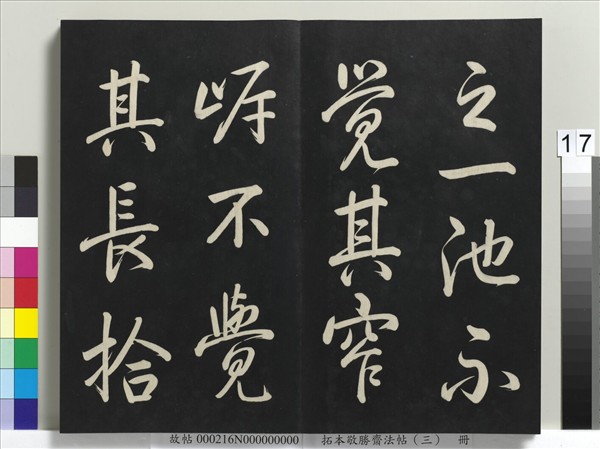 之一池不
覺其窄
不覺
其長拾
17
故帖 000216N000000000 拓本敬勝齋法帖（三） 冊